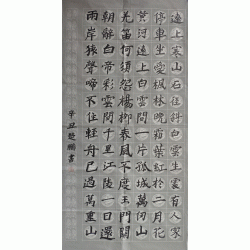 遠上寒山石徑斜白雲生處有人家
停車坐愛楓林晚霜葉紅於二月花
黃河遠上白雲間一片孤城萬仞山
羌笛何須怨楊柳春風不度玉門關
朝辭白帝彩雲間千里江陵一日還
兩岸猿聲啼不住輕舟已過萬重山
辛丑書